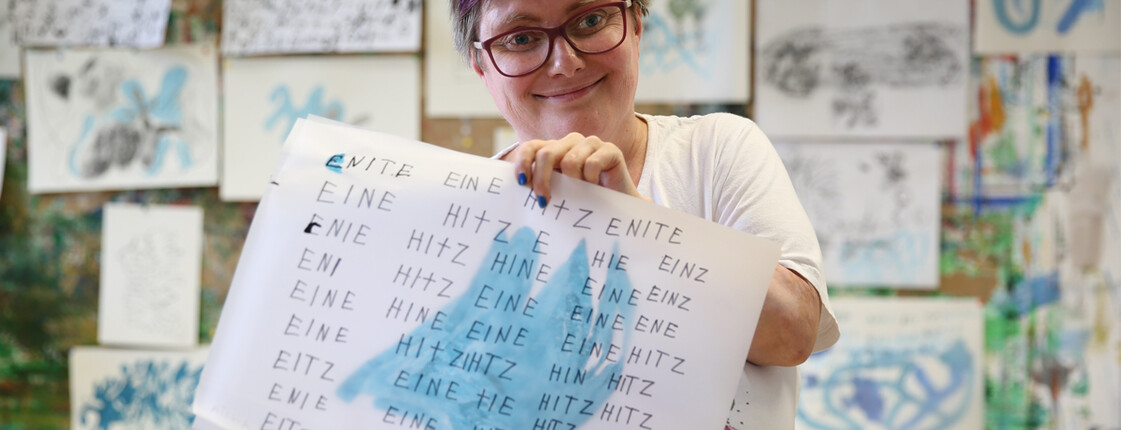 ENITE EINE HITZ ENITE
EINE HITZ E HIE EINZ
ENIE HITZ HINE EINE EINZ
ENI HITZ EINE EINE ENE
EINE HINE EINE EINE HITZ
EINE HITZIHTZ HIN HITZ
EITZ EINE TIE HITZ HITZ
ENIE EINE